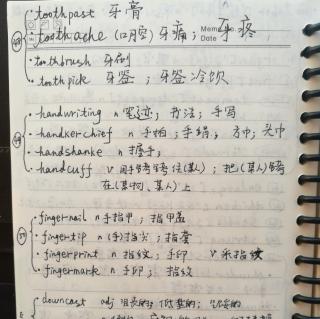 toothpast 牙膏
toothache (口腔) 牙痛; 牙疼
Memo No.
Date
toothbrush 牙刷
toothpick 牙签; 牙签冷饮
handwriting n 笔迹; 书法; 手写
handkerchief n 手帕; 手绢; 方巾; 头巾
handshanke n 握手;
handcuff v 用手铐铐住(某人); 把(某人)铐
在(某物、某人)上
fingernail n 手指甲; 指甲盖
fingertip n (手)指尖; 指套
fingerprint n 指纹; 手印 v 采指纹
fingermark n 手印; 指纹
downcast adj 沮丧的; 低垂的;